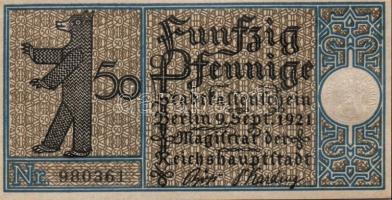 50
Fünfzig
Pfennige
Stadtkassenschein
Berlin 9. Sept. 1921
Magistrat der
Reichshauptstadt
Nr. 980361